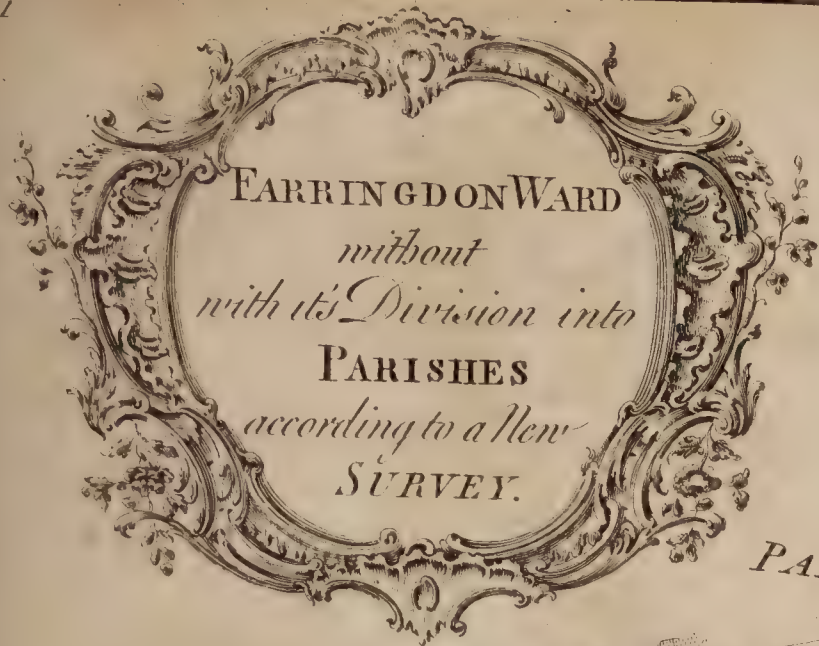 FARRINGDON WARD
without
with it's Division into
PARISHES
according to a New
SURVEY.